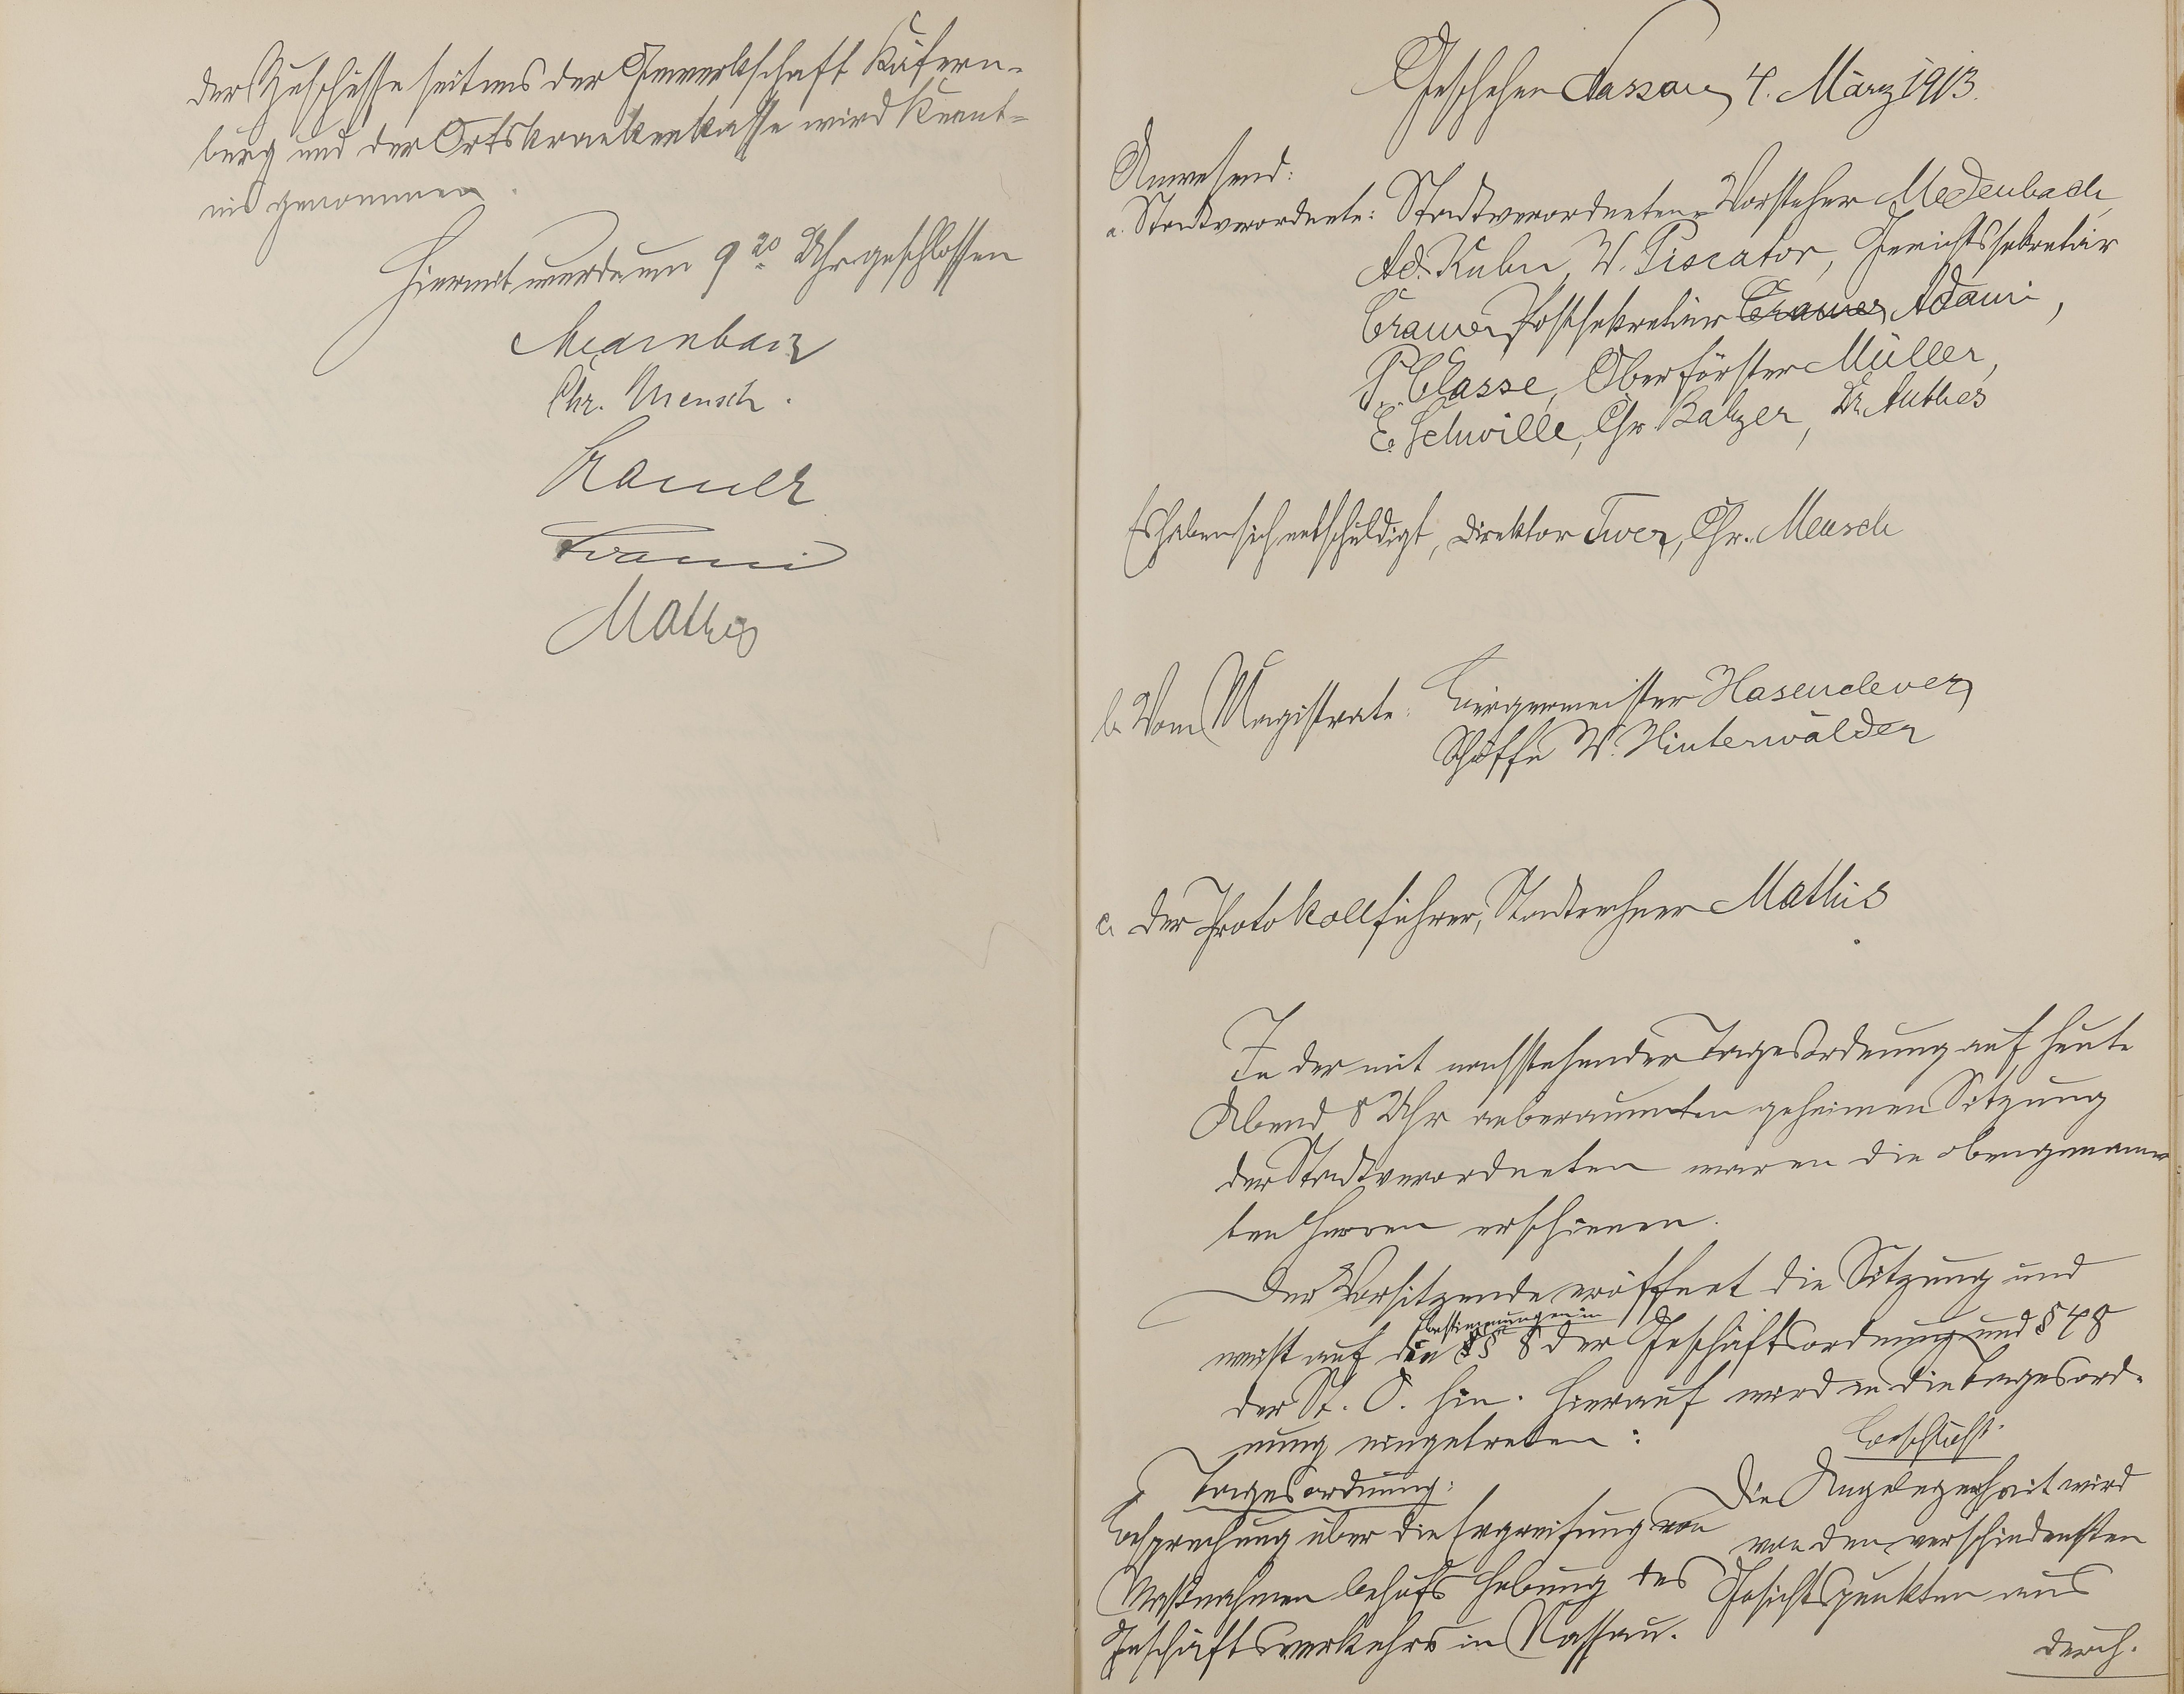 der Zuschüsse seitens der Gewerkschaft Käfern-
burg und der Ortskrankenkasse wird Kennt-
nis genommen.
Hiermit wurde um 9 20 Uhr geschlossen
Medenbach
Chr. Mensch.
Cramer
Adami
Mathis
Geschehen Nassau, 4. März 1913.
Anwesend:
a. Stadtverordnete: Stadtverordneten-Vorsteher Medenbach,
Ad. Kuhn, W. Piscator, Gerichtssekretär
Cramer, Postsekretär Cramer, Adami,
P. Classe, Oberförster Müller,
E. Schwille, Chr. Balzer, Dr. Anthes
Es haben sich entschuldigt, Direktor Twer, Chr. Mensch
b. Vom Magistrate: Bürgermeister Hasenclever,
Schöffe W. Hinterwälder
c. der Protokollführer, Stadtrechner Mathis
In der mit nachstehender Tagesordnung auf heute
Abend 8 Uhr anberaumten geheimen Sitzung
der Stadtverordneten waren die obengenann-
ten Herren erschienen.
Der Vorsitzende eröffnet die Sitzung und
Bestimmungen in
weist auf die §§ 8 der Geschäftsordnung und § 48
der St. O. hin. Hierauf wird in die Tagesord-
nung eingetreten:
Tagesordnung:
Besprechung über die Ergreifung von
Maßnahmen behufs Hebung des
Geschäftsverkehrs in Nassau.
Beschluß.
Die Angelegenheit wird
von den verschiedensten
Gesichtspunkten aus
durch-